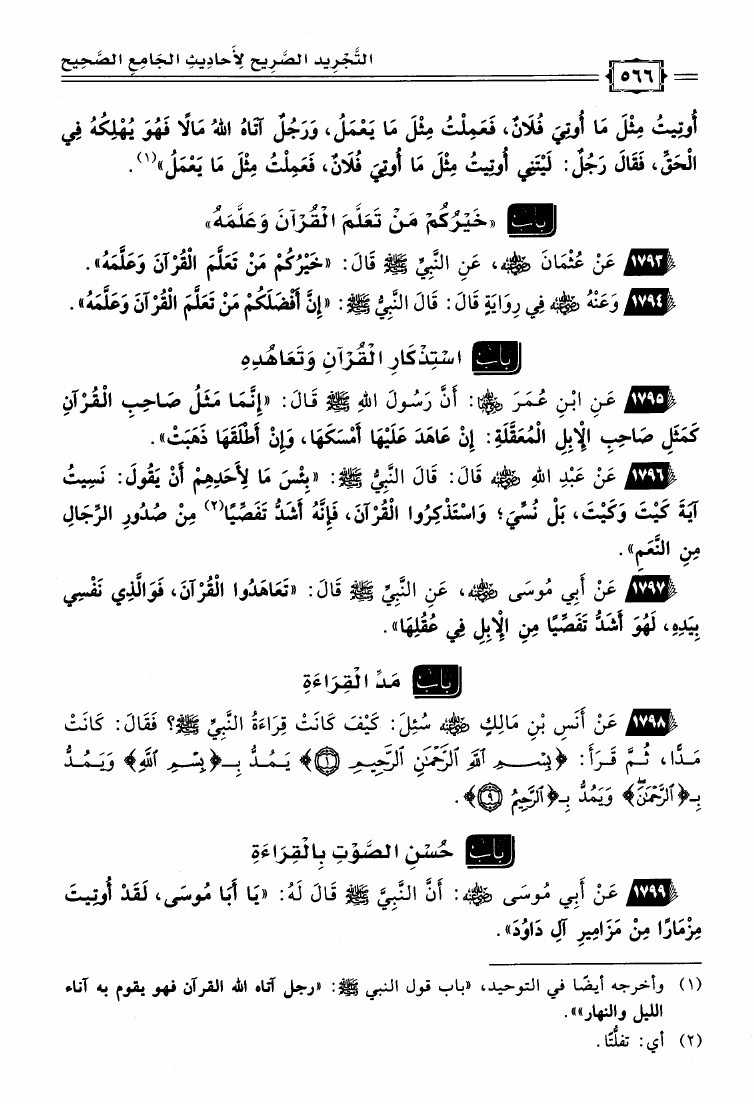 التَّجْرِيد الصَّرِيح لِأَحَادِيثِ الجَامِعِ الصَّحِيح
٥٦٦
أُوتِيتُ مِثْلَ مَا أُوتِيَ فُلَانٌ، فَعَمِلْتُ مِثْلَ مَا يَعْمَلُ، وَرَجُلٌ آتَاهُ اللهُ مَالًا فَهُوَ يُهْلِكُهُ فِي
الْحَقِّ، فَقَالَ رَجُلٌ: لَيْتَنِي أُوتِيتُ مِثْلَ مَا أُوتِيَ فُلَانٌ، فَعَمِلْتُ مِثْلَ مَا يَعْمَلُ»(١).
باب «خَيْرُكُمْ مَنْ تَعَلَّمَ الْقُرْآنَ وَعَلَّمَهُ»
١٧٩٣ عَنْ عُثْمَانَ رضي الله عنه، عَنِ النَّبِيِّ ﷺ قَالَ: «خَيْرُكُمْ مَنْ تَعَلَّمَ الْقُرْآنَ وَعَلَّمَهُ».
١٧٩٤ وَعَنْهُ رضي الله عنه فِي رِوَايَةٍ قَالَ: قَالَ النَّبِيُّ ﷺ: «إِنَّ أَفْضَلَكُمْ مَنْ تَعَلَّمَ الْقُرْآنَ وَعَلَّمَهُ».
باب اسْتِذْكَارِ الْقُرْآنِ وَتَعَاهُدِهِ
١٧٩٥ عَنِ ابْنِ عُمَرَ رضي الله عنهما: أَنَّ رَسُولَ اللهِ ﷺ قَالَ: «إِنَّمَا مَثَلُ صَاحِبِ الْقُرْآنِ
كَمَثَلِ صَاحِبِ الْإِبِلِ الْمُعَقَّلَةِ: إِنْ عَاهَدَ عَلَيْهَا أَمْسَكَهَا، وَإِنْ أَطْلَقَهَا ذَهَبَتْ».
١٧٩٦ عَنْ عَبْدِ اللهِ رضي الله عنه قَالَ: قَالَ النَّبِيُّ ﷺ: «بِئْسَ مَا لِأَحَدِهِمْ أَنْ يَقُولَ: نَسِيتُ
آيَةَ كَيْتَ وَكَيْتَ، بَلْ نُسِّيَ؛ وَاسْتَذْكِرُوا الْقُرْآنَ، فَإِنَّهُ أَشَدُّ تَفَصِّيًا(٢) مِنْ صُدُورِ الرِّجَالِ
مِنِ النَّعَمِ».
١٧٩٧ عَنْ أَبِي مُوسَى رضي الله عنه، عَنِ النَّبِيِّ ﷺ قَالَ: «تَعَاهَدُوا الْقُرْآنَ، فَوَالَّذِي نَفْسِي
بِيَدِهِ، لَهُوَ أَشَدُّ تَفَصِّيًا مِنِ الْإِبِلِ فِي عُقُلِهَا».
باب مَدِّ الْقِرَاءَةِ
١٧٩٨ عَنْ أَنَسِ بْنِ مَالِكٍ رضي الله عنه سُئِلَ: كَيْفَ كَانَتْ قِرَاءَةُ النَّبِيِّ ﷺ؟ فَقَالَ: كَانَتْ
مَدًّا، ثُمَّ قَرَأَ: ﴿بِسْمِ ٱللَّهِ ٱلرَّحْمَٰنِ ٱلرَّحِيمِ ١﴾ يَمُدُّ بِـ﴿بِسْمِ ٱللَّهِ﴾ وَيَمُدُّ
بِـ﴿ٱلرَّحْمَٰنِ﴾ وَيَمُدُّ بِـ﴿ٱلرَّحِيمُ ٩﴾.
باب حُسْنِ الصَّوْتِ بِالْقِرَاءَةِ
١٧٩٩ عَنْ أَبِي مُوسَى رضي الله عنه: أَنَّ النَّبِيَّ ﷺ قَالَ لَهُ: «يَا أَبَا مُوسَى، لَقَدْ أُوتِيتَ
مِزْمَارًا مِنْ مَزَامِيرِ آلِ دَاوُدَ».
(١) وأخرجه أيضًا في التوحيد، «باب قول النبي ﷺ: «رجل آتاه الله القرآن فهو يقوم به آناء
الليل والنهار»».
(٢) أي: تفلُّتًا.